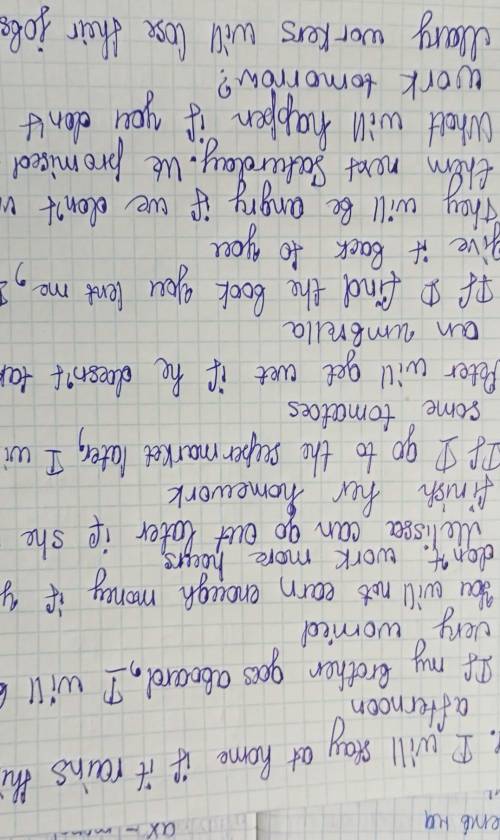 I will stay at home if it rains thi
afternoon
If my brother goes aboard, I will
very worried
You will not earn enough money if y
don't work more hours
Melissa can go out later if she
finish her homework
If I go to the supermarket later, I wi
some tomatoes
Peter will get wet if he doesn't ta
an umbrella
If I find the book you lent me, I
give it back to you
They will be angry if we don't
them next Saturday. We promised
What will happen if you don't
work tomorrow?
Many workers will lose their jobs